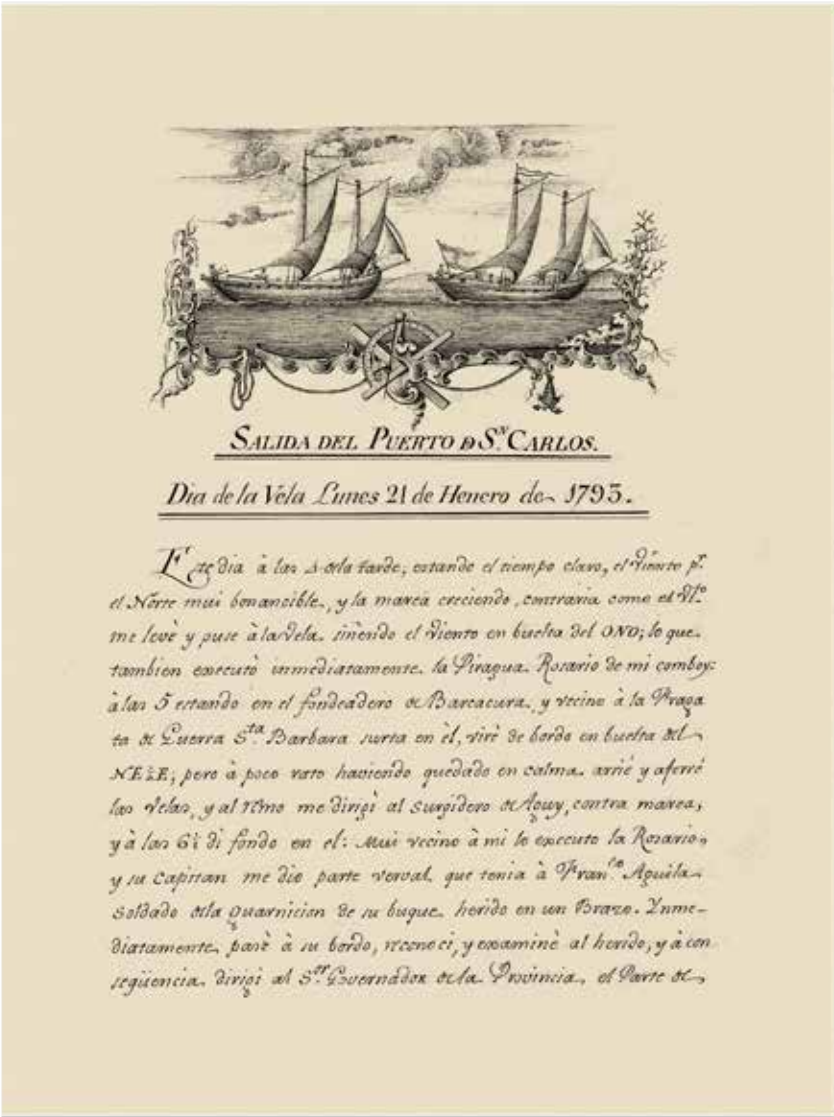 SALIDA DEL PUERTO D S.N CARLOS.
Dia de la Vela Lunes 21 de Henero de 1793.
Este dia à las 4 dela tarde, estando el tiempo claro, el viento p.r
el Norte mui bonancible, y la marea creciendo, contraria como el v.to
me levè y puse à la vela siñendo el viento en buelta del ONO; lo que
tambien executò inmediatamente la Piragua Rosario de mi comboy:
à las 5 estando en el fondeadero de Barcacura, y vecino à la Fraga
ta de Guerra S.ta Barbara surta en èl, virè de bordo en buelta del
pero à poco rato haviendo quedado en calma arriè y aferrè
las velas, y al remo me dirigì al surgidero de Aguy, contra marea,
y à las 6½ dì fondo en el: Mui vecino à mi lo executo la Rosario,
y su Capitan me dio parte verval que tenia à Fran.co Aguila
soldado dela Guarnicion de su buque herido en un Brazo. Ynme-
diatamente pasè à su bordo, reconoci, y examinè al herido, y à con
seqüencia dirigì al S.or Governador dela Provincia el Parte de